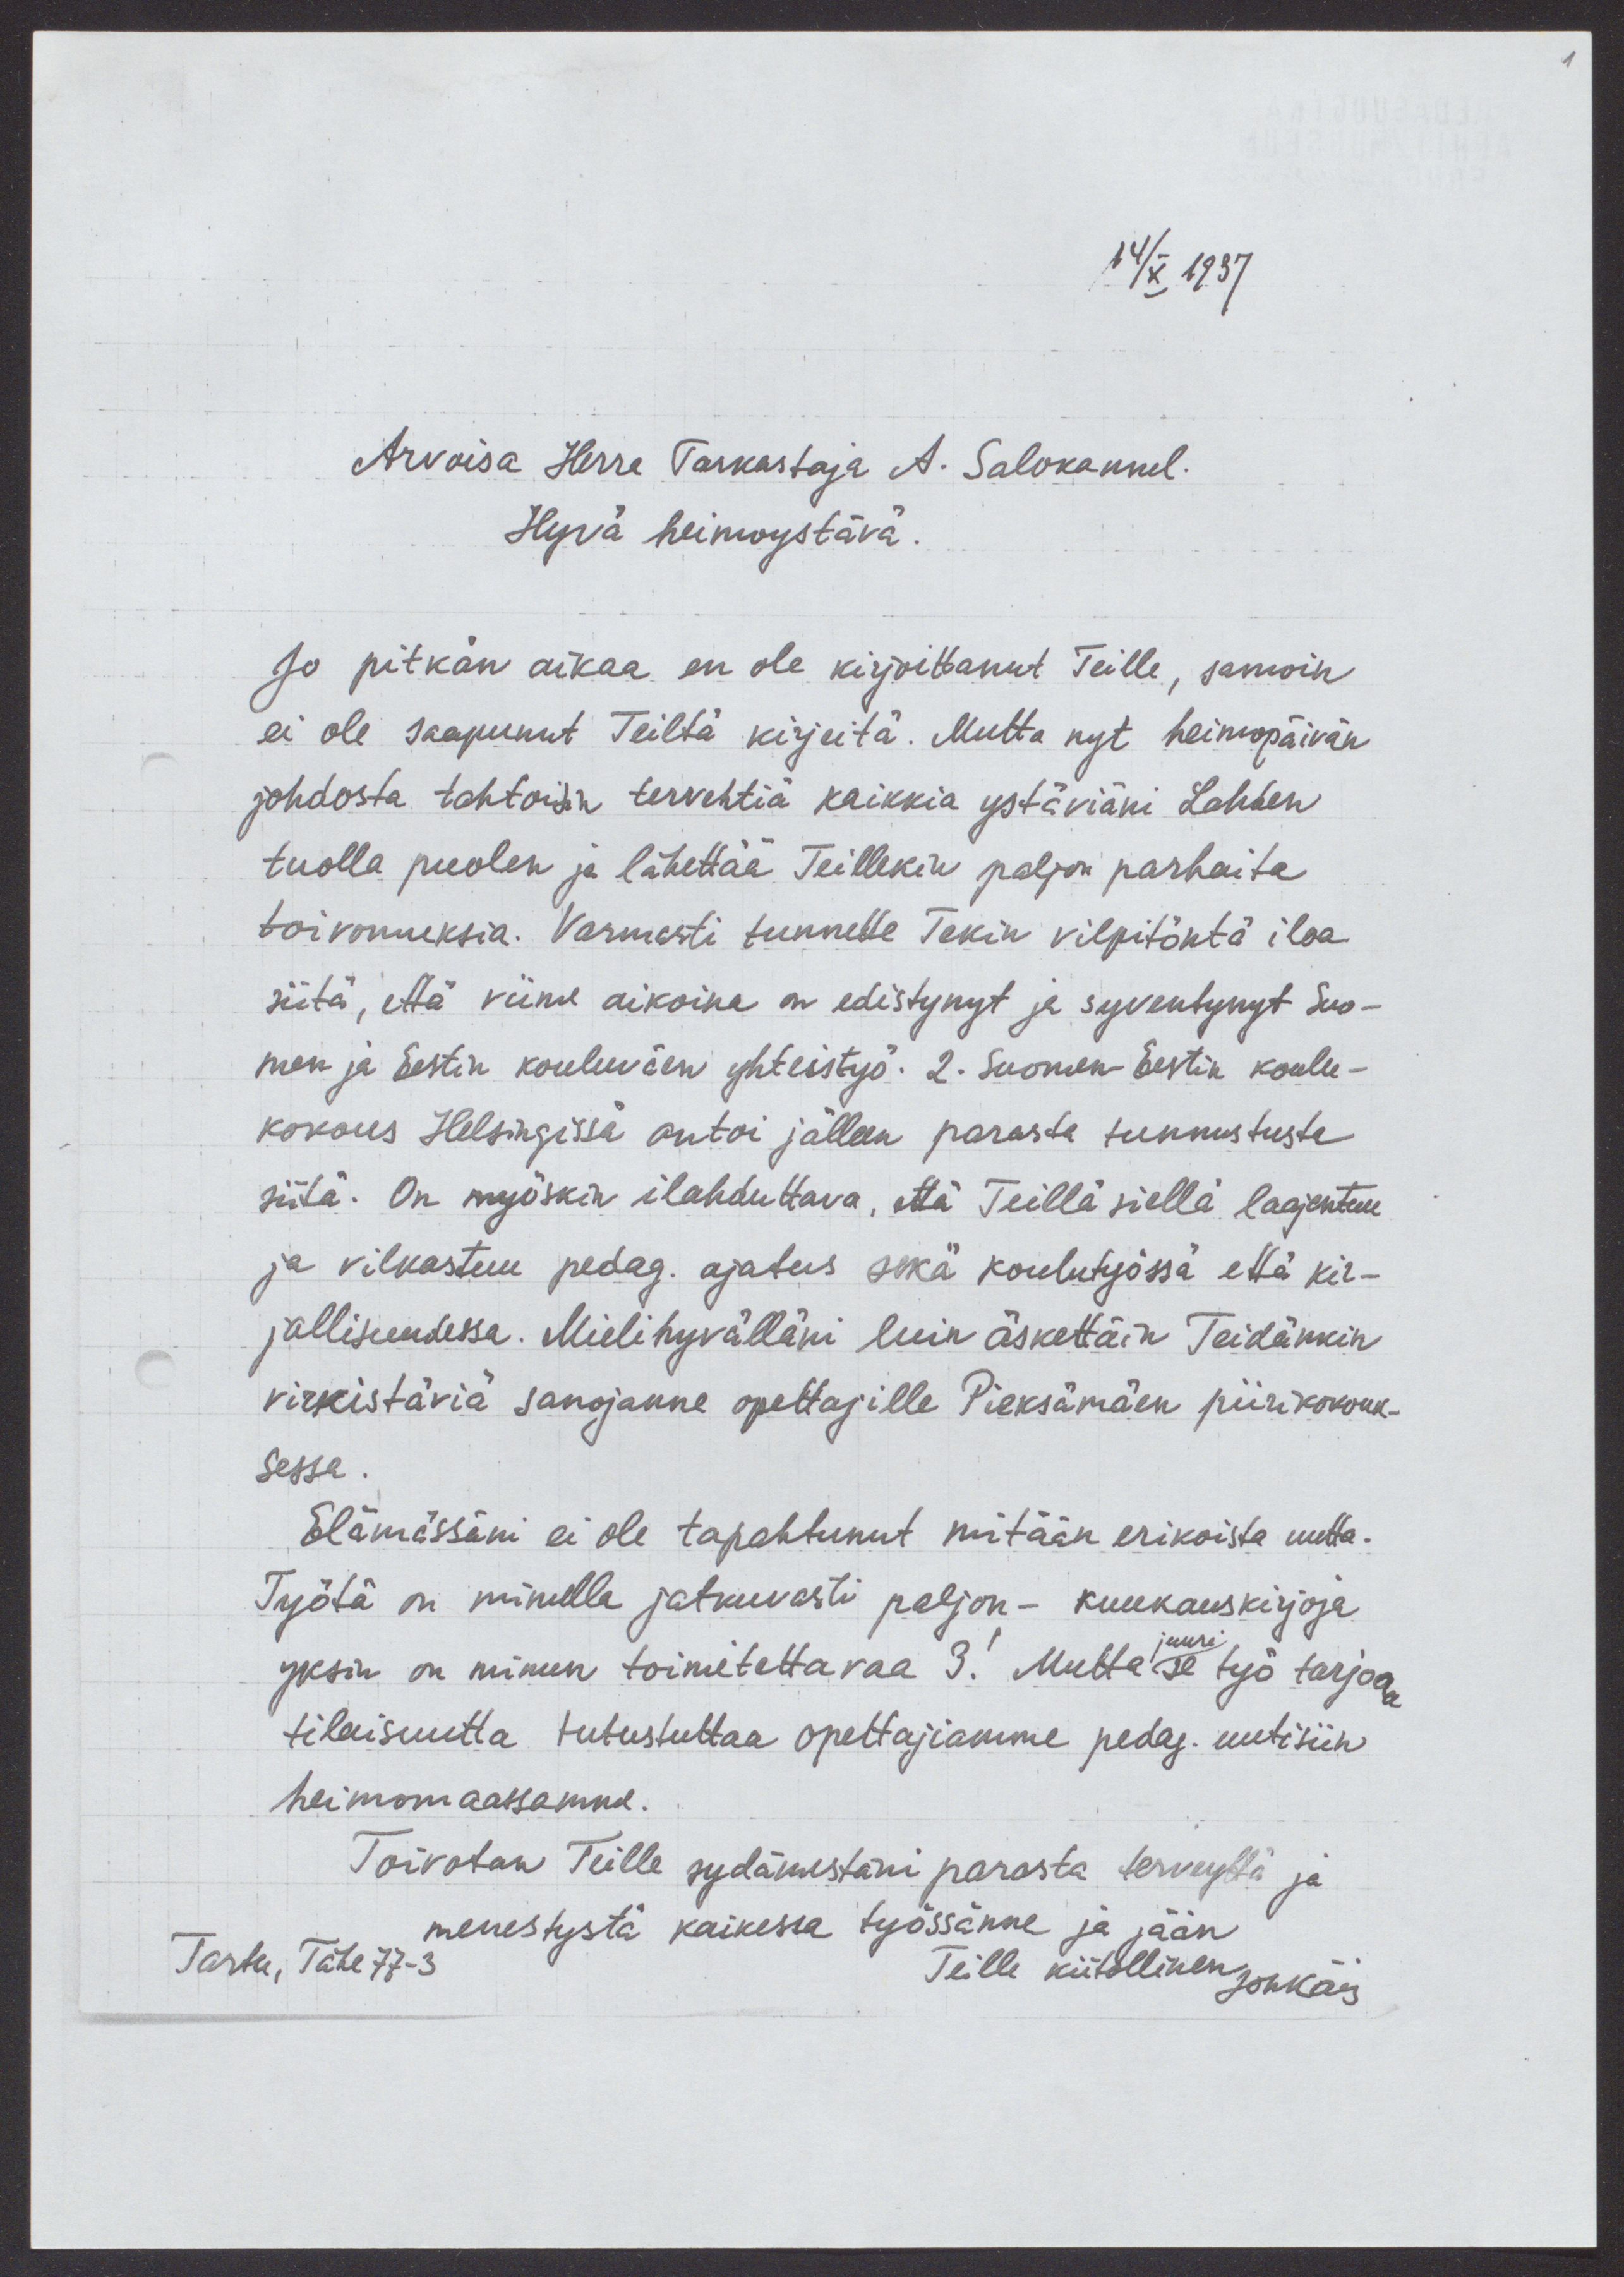 1
14/X 1937
Arvoisa Herra Tarkastaja A. Salokannel.
Hyvä heimoystävä.
Jo pitkän aikaa en ole kirjoittanut Teille, samoin
ei ole saapunut Teiltä kirjeitä. Mutta nyt heimopäivän
johdosta tahtoisin tervehtiä kaikkia ystäviäni Lahden
tuolla puolen ja lähettää Teillekin paljon parhaita
toivomuksia. Varmasti tunnette Tekin vilpitöntä iloa
siitä, että viime aikoina on edistynyt ja syventynyt Suo-
men ja Eestin kouluväen yhteistyö. 2. Suomen-Eestin koulu-
kokous Helsingissä antoi jälleen parasta tunnustusta
siitä. On myöskin ilahduttava, että Teillä siellä laajentuu
ja vilkastuu pedag. ajatus sekä koulutyössä että kir-
jallisuudessa. Mielihyvälläni luin äskettäin Teidänkin
virkistäviä sanojanne opettajille Pieksämäen piirikokouk-
sessa.
Elämässäni ei ole tapahtunut mitään erikoista uutta.
Työtä on minulla jatkuvasti paljon – kuukauskirjoja
yksin on minun toimitettavaa 3! Mutta juuri se työ tarjoaa
tilaisuutta tutustuttaa opettajiamme pedag. uutisiin
heimomaassamme.
Toivotan Teille sydämestäni parasta terveyttä ja
menestystä kaikessa työssänne ja jään
Teille kiitollinen
Tartu, Tähe 77-3